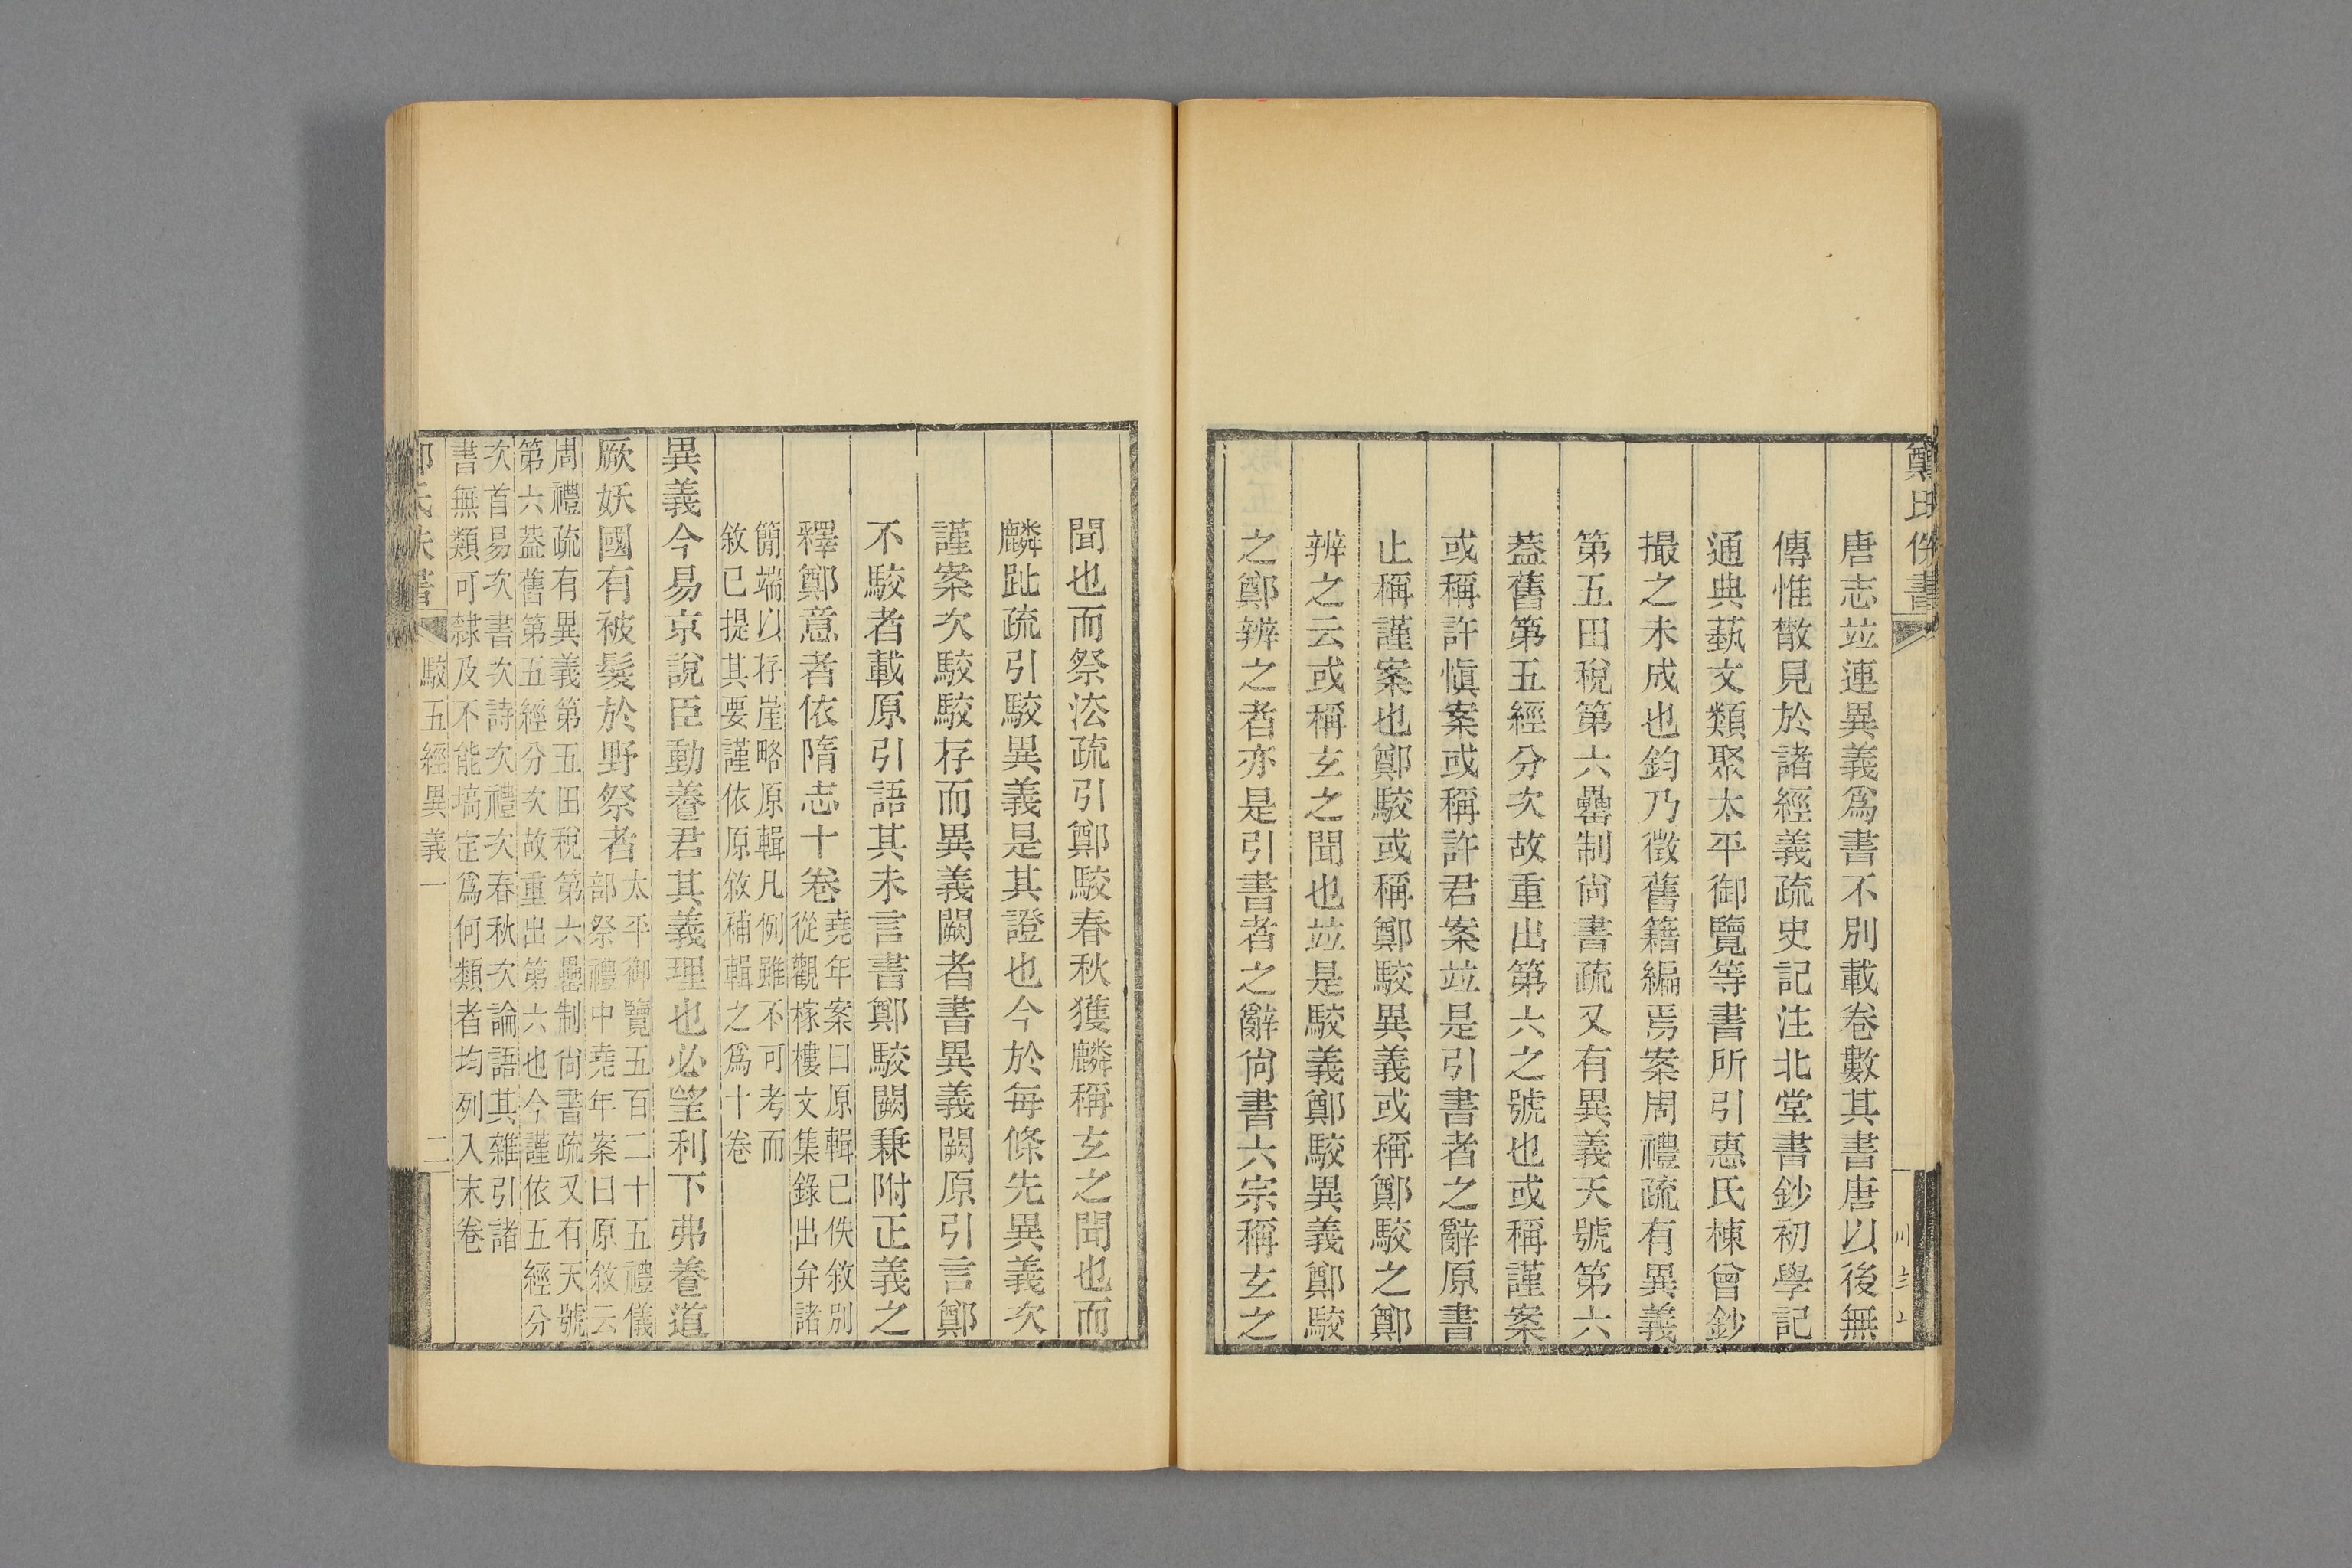 鄭氏佚書
唐志竝連異義爲書不別載卷數其書唐以後無
傳惟散見於諸經義疏史記注北堂書鈔初學記
通典蓺文類聚太平御覽等書所引惠氏棟曾鈔
撮之未成也鈞乃徵舊籍編焉案周禮疏有異義
第五田稅第六罍制尙書疏又有異義天號第六
葢舊第五經分次故重出第六之號也或稱謹案
或稱許愼案或稱許君案竝是引書者之辭原書
止稱謹案也鄭駮或稱鄭駮異義或稱鄭駮之鄭
辨之云或稱玄之聞也竝是駮義鄭駮異義鄭駮
之鄭辨之者亦是引書者之辭尙書六宗稱玄之
聞也而祭法疏引鄭駮春秋獲麟稱玄之聞也而
麟趾疏引駮異義是其證也今於每條先異義次
謹案次駮駮存而異義闕者書異義闕原引言鄭
不駮者載原引語其未言書鄭駮闕秉附正義之
釋鄭意者依隋志十卷堯年案曰原輯已佚敘別
從觀稼樓文集錄出弁諸
簡端以存崖略原輯凡例雖不可考而
敘已提其要謹依原敘補輯之爲十卷
異義今易京說臣動養君其義理也必望利下弗養道
厥妖國有被髮於野祭者太平御覽五百二十五禮儀
部祭禮中堯年案曰原敘云
周禮疏有異義第五田稅第六罍制尙書疏又有天號
第六葢舊第五經分次故重出第六也今謹依五經分
次首易次書次詩次禮次春秋次論語其雜引諸
書無類可隸及不能塙定爲何類者均列入末卷
氏佚書 駮五經異義一 二